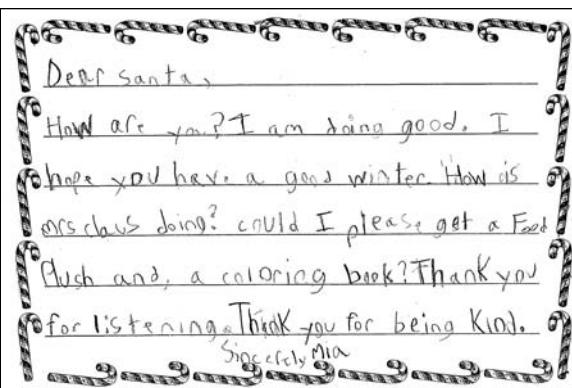 Dear Santa,
How are you? I am doing good. I
hope you have a good winter. How is
mrs claus doing? could I please get a Food
Plush and, a coloring book? Thank you
for listening. Thank you for being Kind.
Sincerely Mia